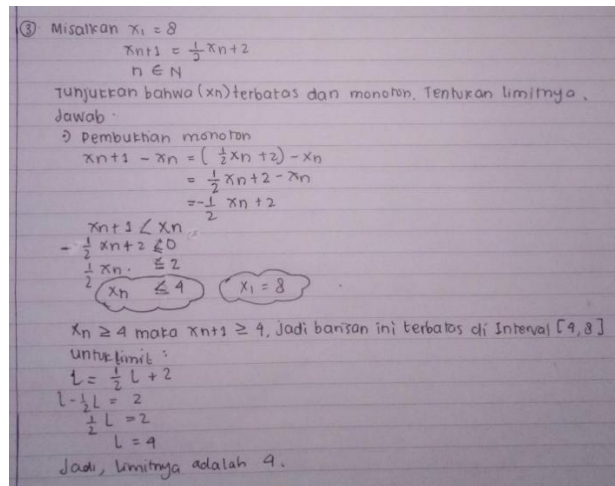 ③ Misalkan x₁ = 8
xn+1 = 1/2 xn + 2
n ∈ N
Tunjukkan bahwa (xn) terbatas dan monoton. Tentukan limitnya.
Jawab.
•) Pembuktian monoton
xn+1 - xn = (1/2 xn + 2) - xn
= 1/2 xn + 2 - xn
= -1/2 xn + 2
xn+1 < xn
- 1/2 xn + 2 ≤ 0
1/2 xn. ≤ 2
xn ≤ 4 x₁ = 8
xn ≥ 4 maka xn+1 ≥ 4, Jadi barisan ini terbatas di Interval [4,8]
untuk limit :
L = 1/2 L + 2
L - 1/2 L = 2
1/2 L = 2
L = 4
Jadi, limitnya adalah 4.